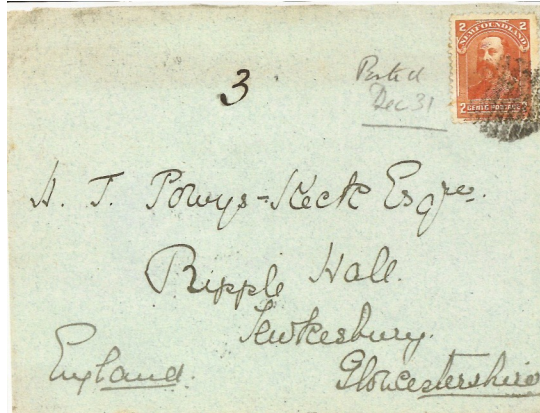 2 NEWFOUNDLAND 2
2 CENTS POSTAGE 2
Posted
Dec 31
3
H. J. Powys-Keck Esqre.
Ripple Hall.
Tewkesbury.
Gloucestershire
England.